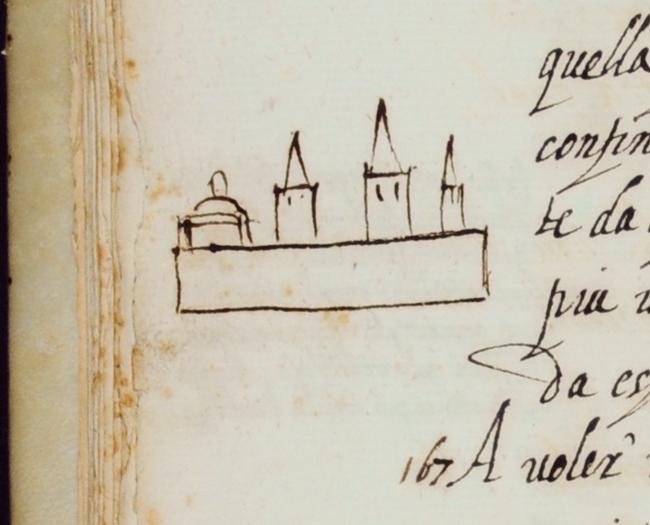 quella
confin
te da
piu
da es
167 A uoler